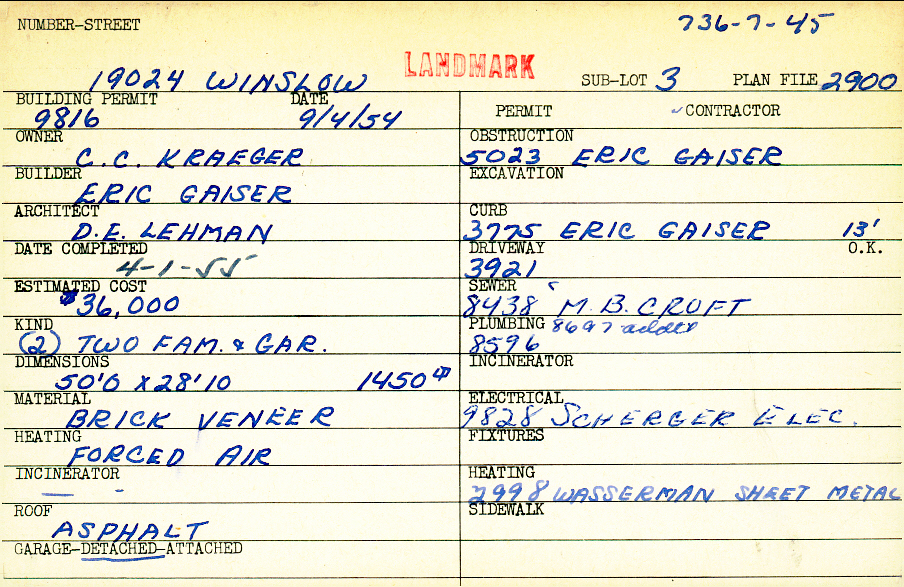 NUMBER-STREET
736-7-45
19024 WINSLOW
LANDMARK
SUB-LOT 3 PLAN FILE 2900
BUILDING PERMIT DATE
9816 9/4/54
PERMIT ✓CONTRACTOR
OWNER
C.C. KRAEGER
OBSTRUCTION
5023 ERIC GAISER
BUILDER
ERIC GAISER
EXCAVATION
ARCHITECT
D.E. LEHMAN
CURB
3775 ERIC GAISER 13'
DATE COMPLETED
4-1-55
DRIVEWAY O.K.
3921
ESTIMATED COST
$36,000
SEWER
8438 M.B. CROFT
KIND
(2) TWO FAM. & GAR.
PLUMBING 8697 added
8596
DIMENSIONS
50'0 X 28'10 1450
INCINERATOR
MATERIAL
BRICK VENEER
ELECTRICAL
9828 SCHERGER ELEC.
HEATING
FORCED AIR
FIXTURES
INCINERATOR
— -
HEATING
2998 WASSERMAN SHEET METAL
ROOF
ASPHALT
SIDEWALK
GARAGE-DETACHED-ATTACHED